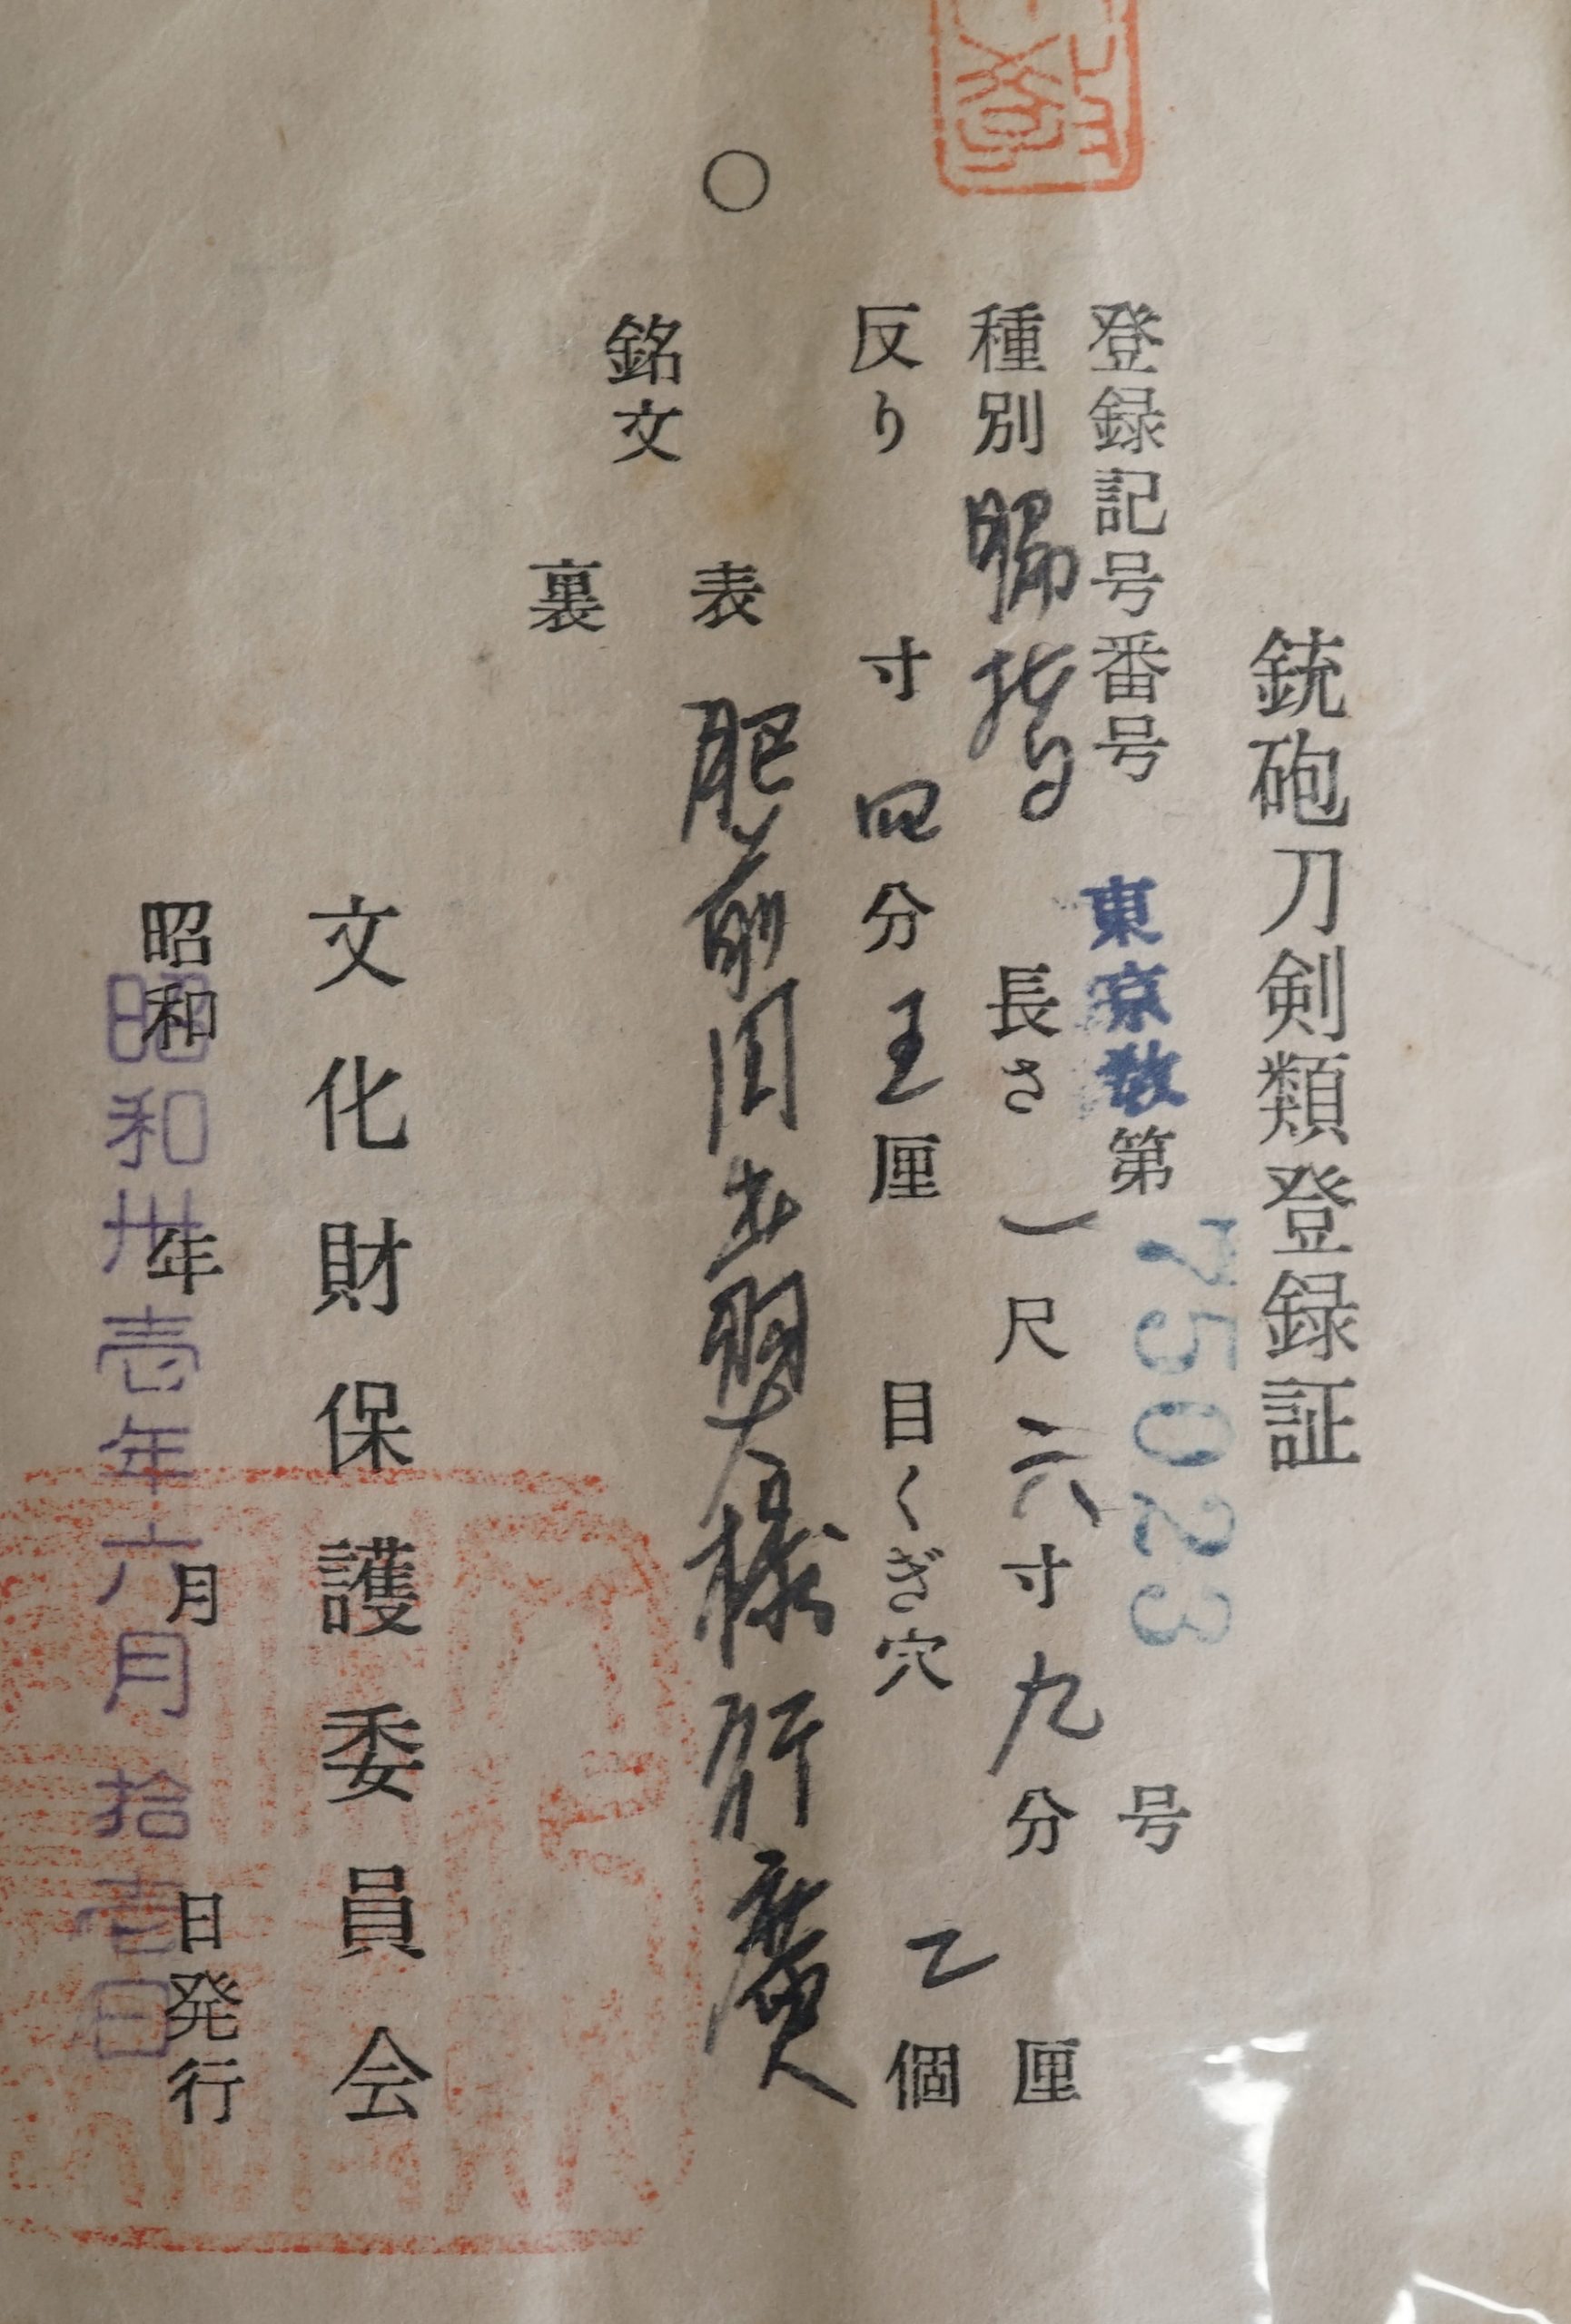 銃砲刀剣類登録証
登録記号番号 東京教第 75023 号
種別 脇指 長さ 一尺六寸九分 厘
反り 寸四分五厘 目くぎ穴 乙個
○
銘文
表 肥前国出羽大掾行廣
裏
文化財保護委員会
昭和 年 月 日発行
昭和卅壱年六月拾壱日